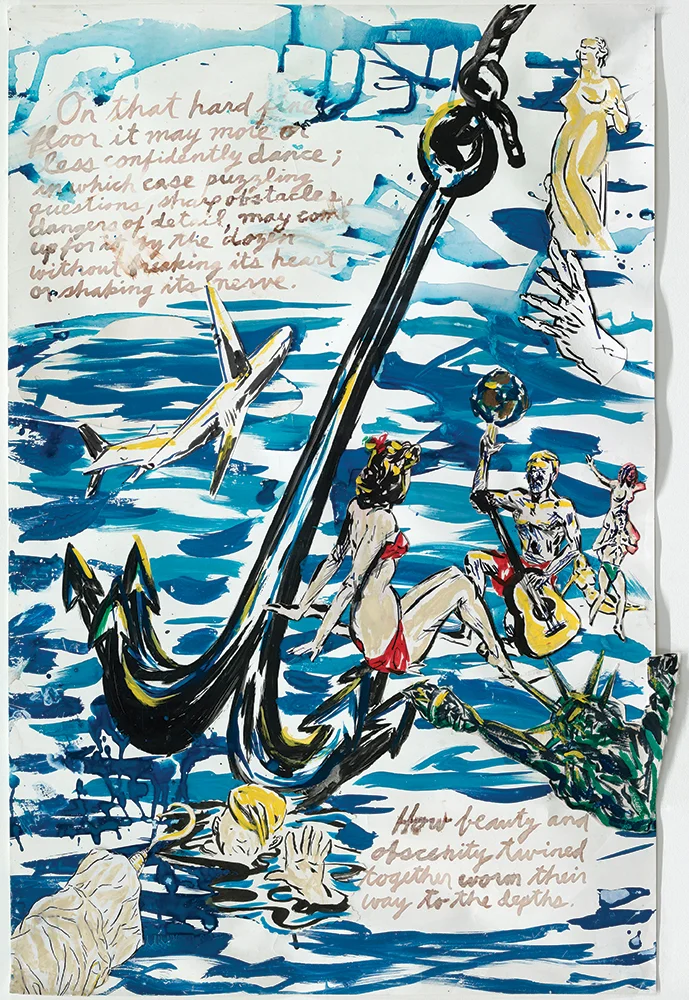 On that hard fine
floor it may more or
less confidently dance;
in which case puzzling
questions, sharp obstacles,
dangers of detail, may come
up for it by the dozen
without breaking its heart
or shaking its nerve.
How beauty and
obscenity twined
together worm their
way to the depths.